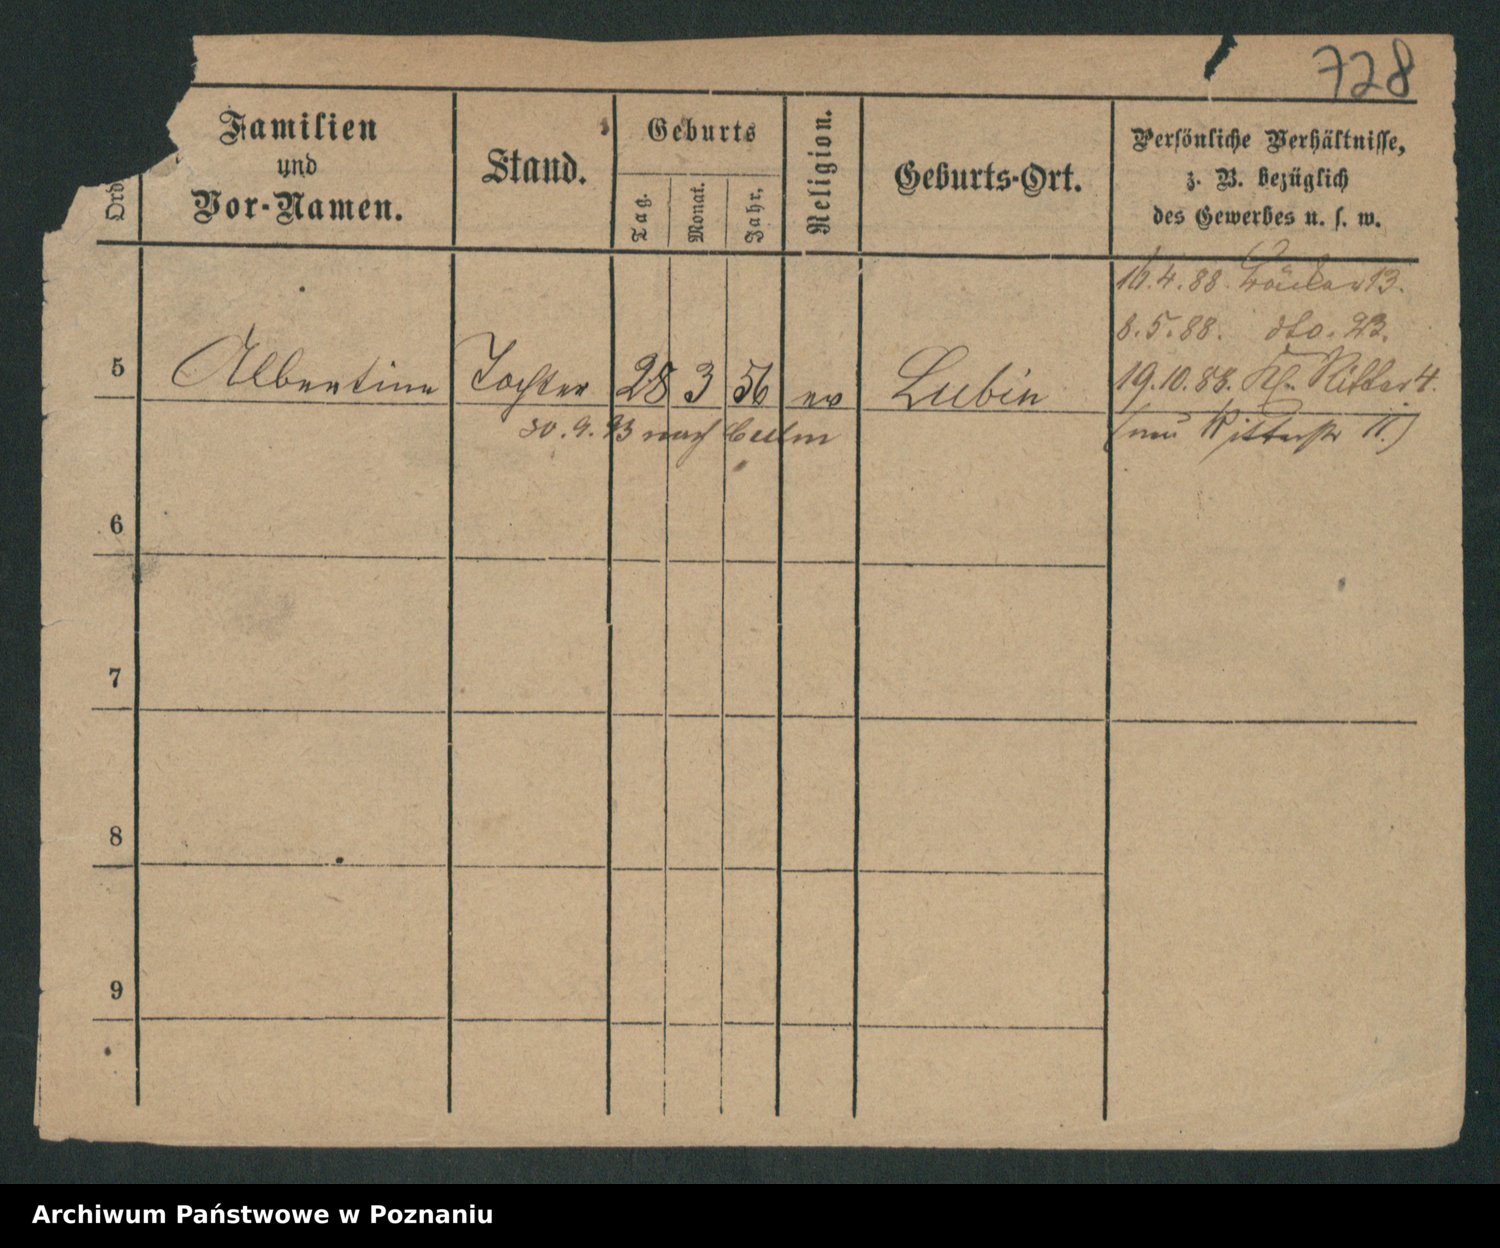 728
Ord
Familien
und
Vor-Namen.
Stand.
Geburts
Tag.
Monat.
Jahr.
Religion.
Geburts-Ort.
Persönliche Verhältnisse,
z. B. bezüglich
des Gewerbes u. s. w.
16.4.88. 13.
8.5.88. dto. 23.
5 Albertine Tochter 28 3 56 ev Lubin
19.10.88. Kl. Ritter 4.
30.9.93 nach Culm
(neu Ritterstr 11.)
6
7
8
9
Archiwum Państwowe w Poznaniu